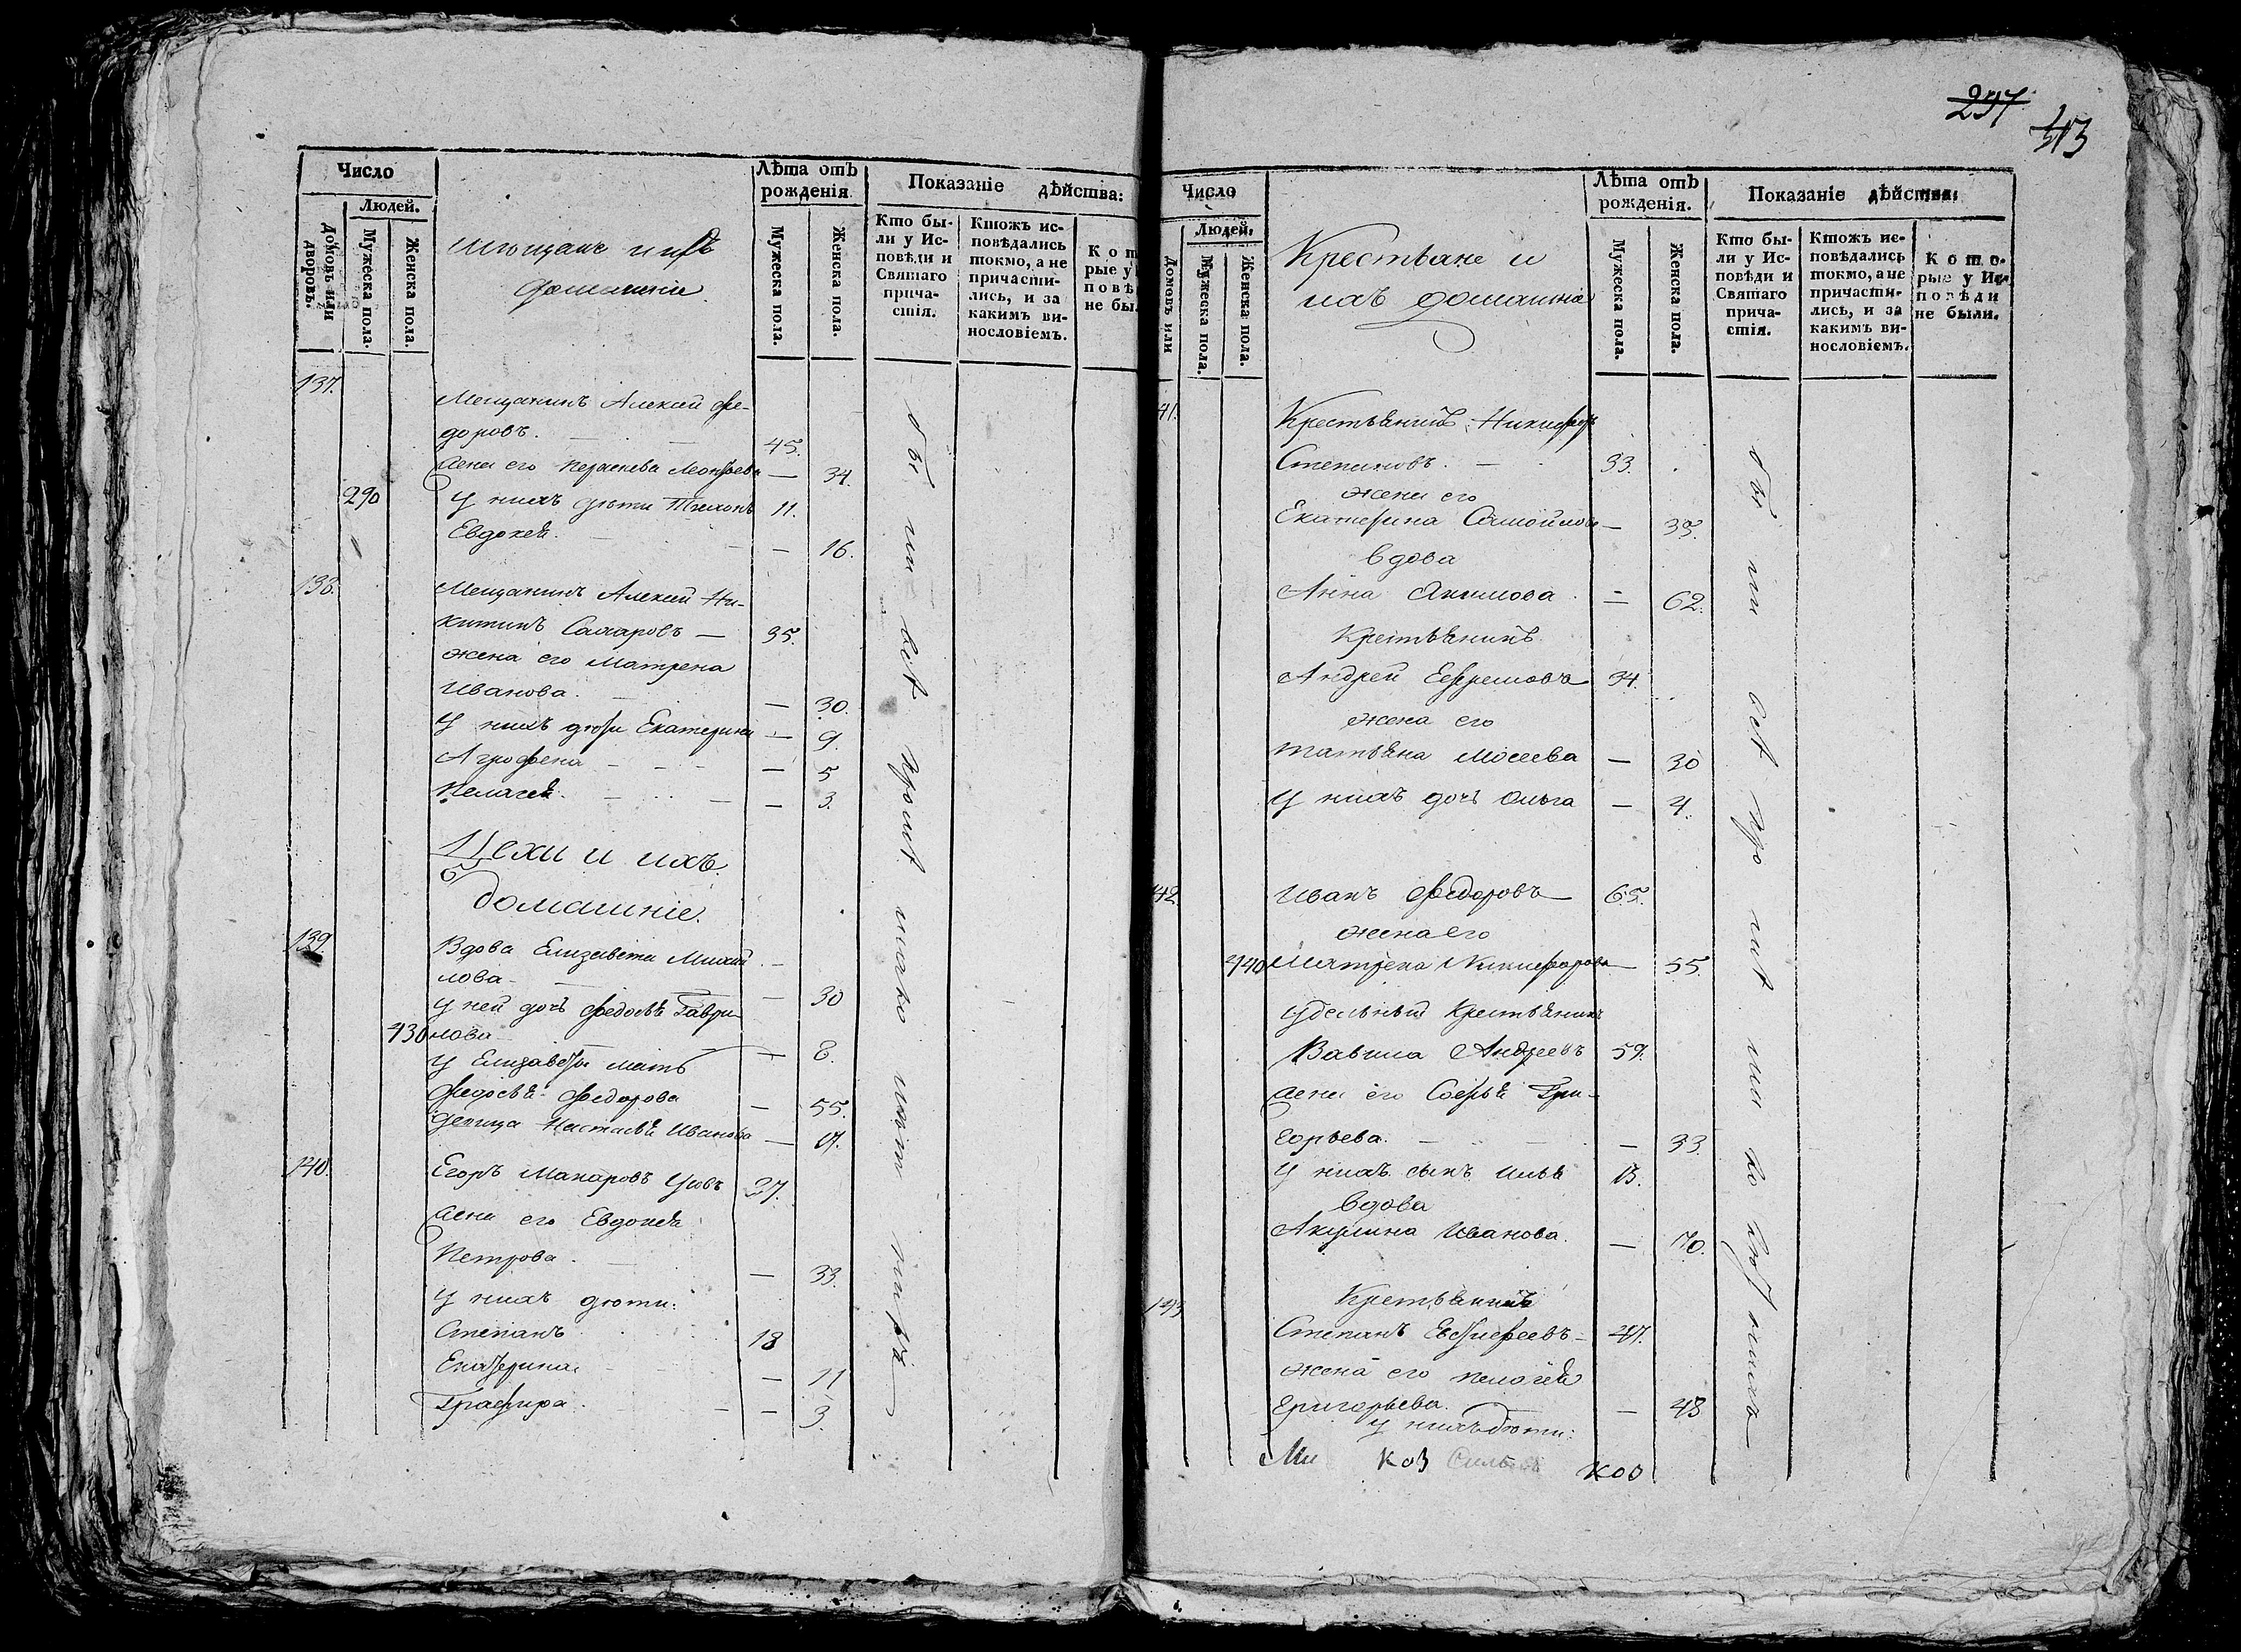 237
413
Число
Людей.
Домовъ или дворовъ.
Мужеска пола.
Женска пола.
Мещане и ихъ
домашніе.
Лѣта отъ рожденія
Мужеска пола.
Женска пола.
Показаніе дѣйства:
Кто были у Исповѣди и Святаго причастія.
Ктожъ исповѣдались токмо, а не причастились, и за какимъ винословіемъ.
137.
Мещанинъ Алексѣй Фе-
доровъ. — — 45.
жена его Параскева Леонтьева — 34.
290 у нихъ дѣти Тихонъ 11.
Евдокея. — — 16.
138.
Мещанинъ Алексѣй Ни-
китинъ Сахаровъ — 35.
жена его Матрена
Иванова. — — 30.
У нихъ дочери Екатерина — 9.
Агрофена — — — 5
Пелагея. — — — 3.
Цехи и ихъ
домашніе.
139.
Вдова Елизавета Михай
лова — — 30
у ней дочь Федосья Гаври-
430 лова — 8.
у Елизаветы мать
Федосья Федорова — 55.
девица Настасья Иванова —
140.
Егоръ Макаровъ 27.
жена его Евдокея
Петрова. — — 33.
у нихъ дѣти:
Степанъ 18
Екатерина — — 11
Графира. — — 3.
были всѣ
Число
Людей.
Домовъ или
Мужеска пола.
Женска пола.
Крестьяне и
ихъ домашніе
Лѣта отъ рожденія.
Мужеска пола.
Женска пола.
Показаніе дѣйства:
Кто были у Исповѣди и Святаго причастія.
Ктожъ исповѣдались токмо, а не причастились, и за какимъ винословіемъ.
Которые у Исповѣди не были.
41.
Крестьянинъ Никифоръ
Степановъ. — 33.
жена его
Екатерина Самойлова — 35.
вдова
Анна Акимова — 62.
Крестьянинъ
Андрей Ефремовъ 34.
жена его
Татьяна Мосеева — 30
У нихъ дочь Ольга — 4.
42.
Иванъ Федоровъ 65.
жена его
440 Матрена Никифорова — 55.
Удельный Крестьянинъ
Вавила Андреевъ 59.
жена его Софья Гри-
горьева. — — 33.
У нихъ сынъ Илья 13.
вдова
Акулина Иванова. — 70.
143
Крестьянинъ
Степанъ Евстифеевъ — 47.
жена его Пелогея
Григорьева. — 48
У нихъ дѣти:
Ми ков ков
были всѣ